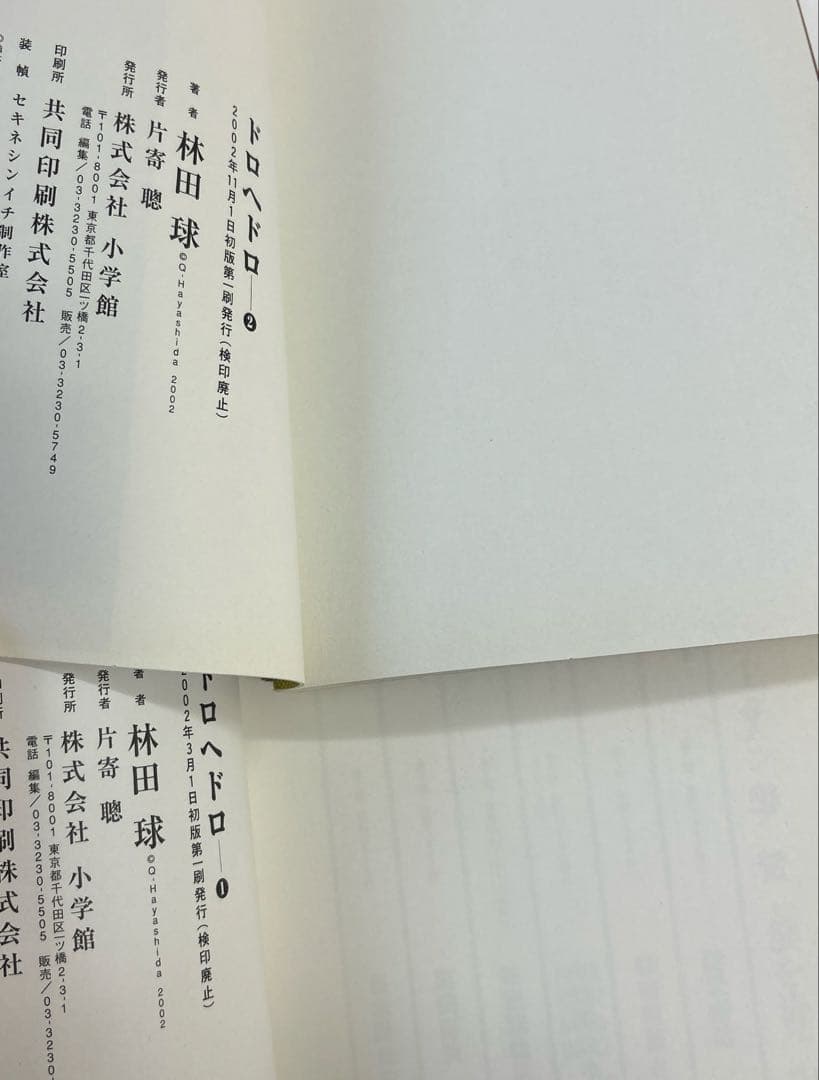 ドロヘドロ――❷
2002年11月1日初版第一刷発行(検印廃止)
著者 林田 球 ©Q-Hayashida 2002
発行者 片寄 聰
発行所 株式会社 小学館
〒101-8001 東京都千代田区一ツ橋2-3-1
電話 編集/03-3230-5505 販売/03-3230-5749
印刷所 共同印刷株式会社
装幀 セキネシンイチ制作室
ドロヘドロ――❶
2002年3月1日初版第一刷発行(検印廃止)
著者 林田 球 ©Q-Hayashida 2002
発行者 片寄 聰
発行所 株式会社 小学館
〒101-8001 東京都千代田区一ツ橋2-3-1
電話 編集/03-3230-5505 販売/03-3230
印刷所 共同印刷株式会社